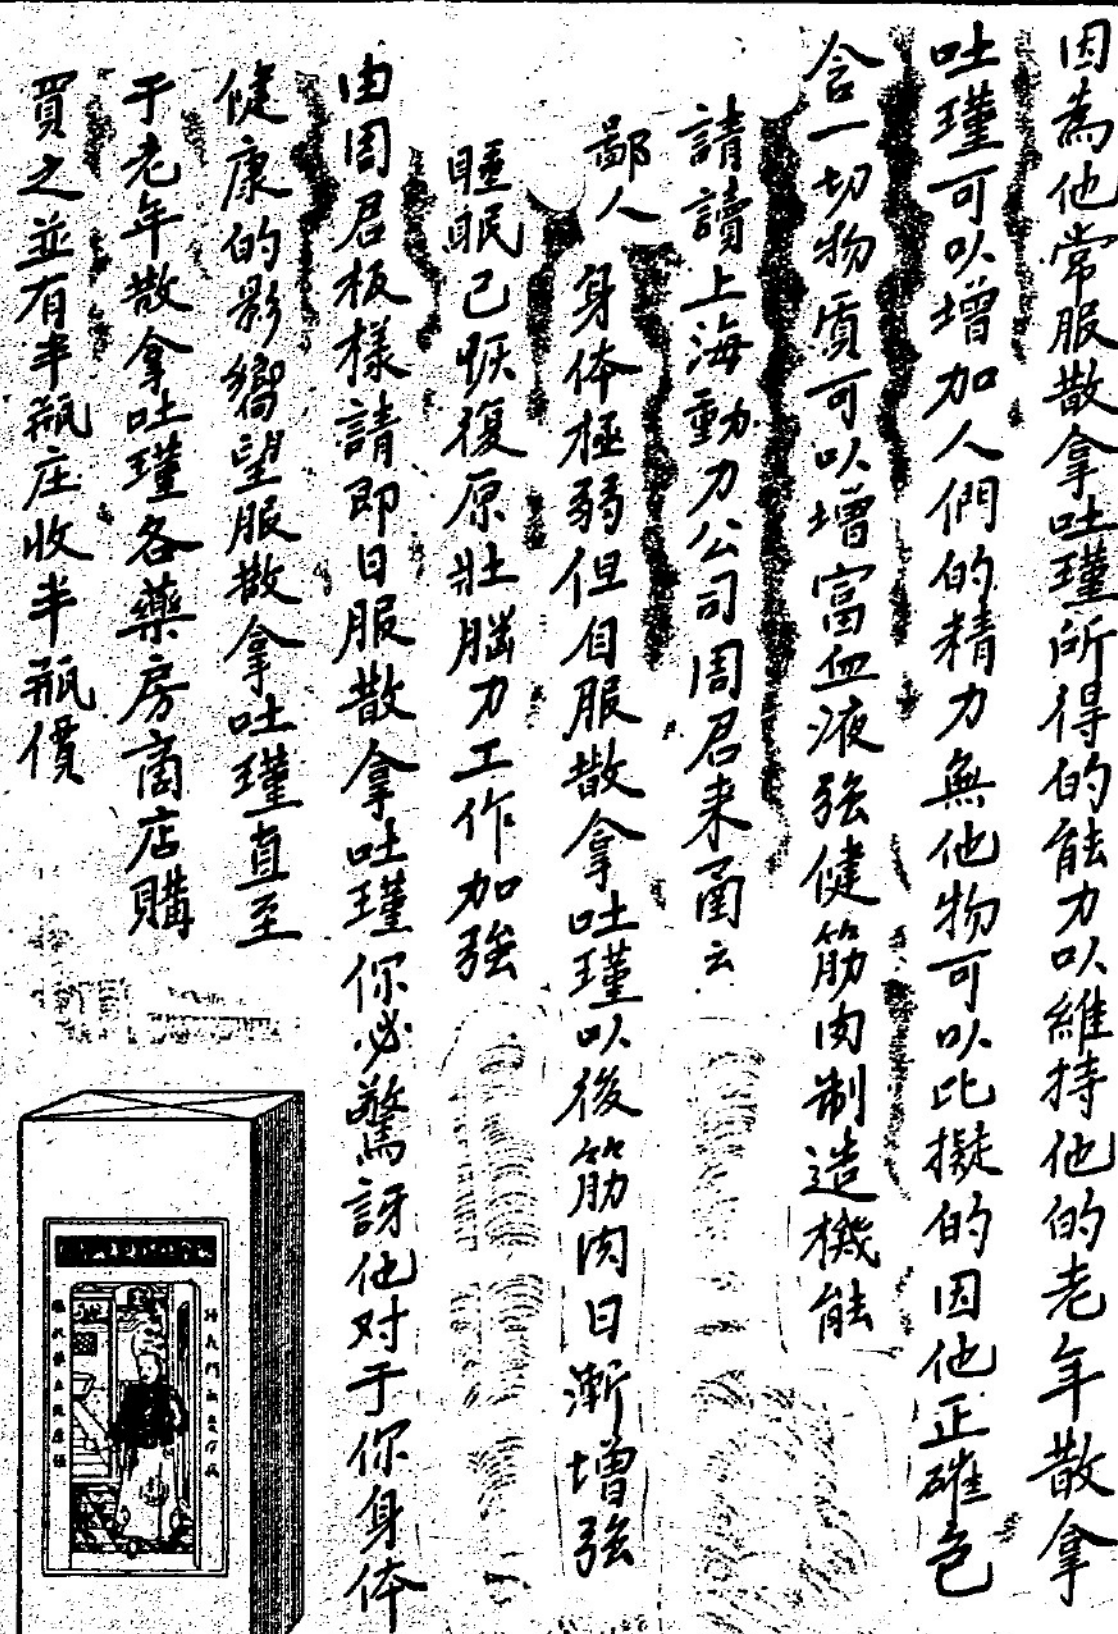 因為他常服散拿吐瑾所得的能力以維持他的老年散拿
吐瑾可以增加人們的精力無他物可以比擬的因他正確包
含一切物质可以增富血液強健筋肉制造機能
請讀上海動力公司周君来函云
鄙人身体極弱但自服散拿吐瑾以後筋肉日漸增強
睡眠已恢復原壯腦力工作加強
由周君板樣請即日服散拿吐瑾你必驚訝他对于你身体
健康的影嚮望服散拿吐瑾直至
于老年散拿吐瑾各藥房商店購
買之並有半瓶庄收半瓶價